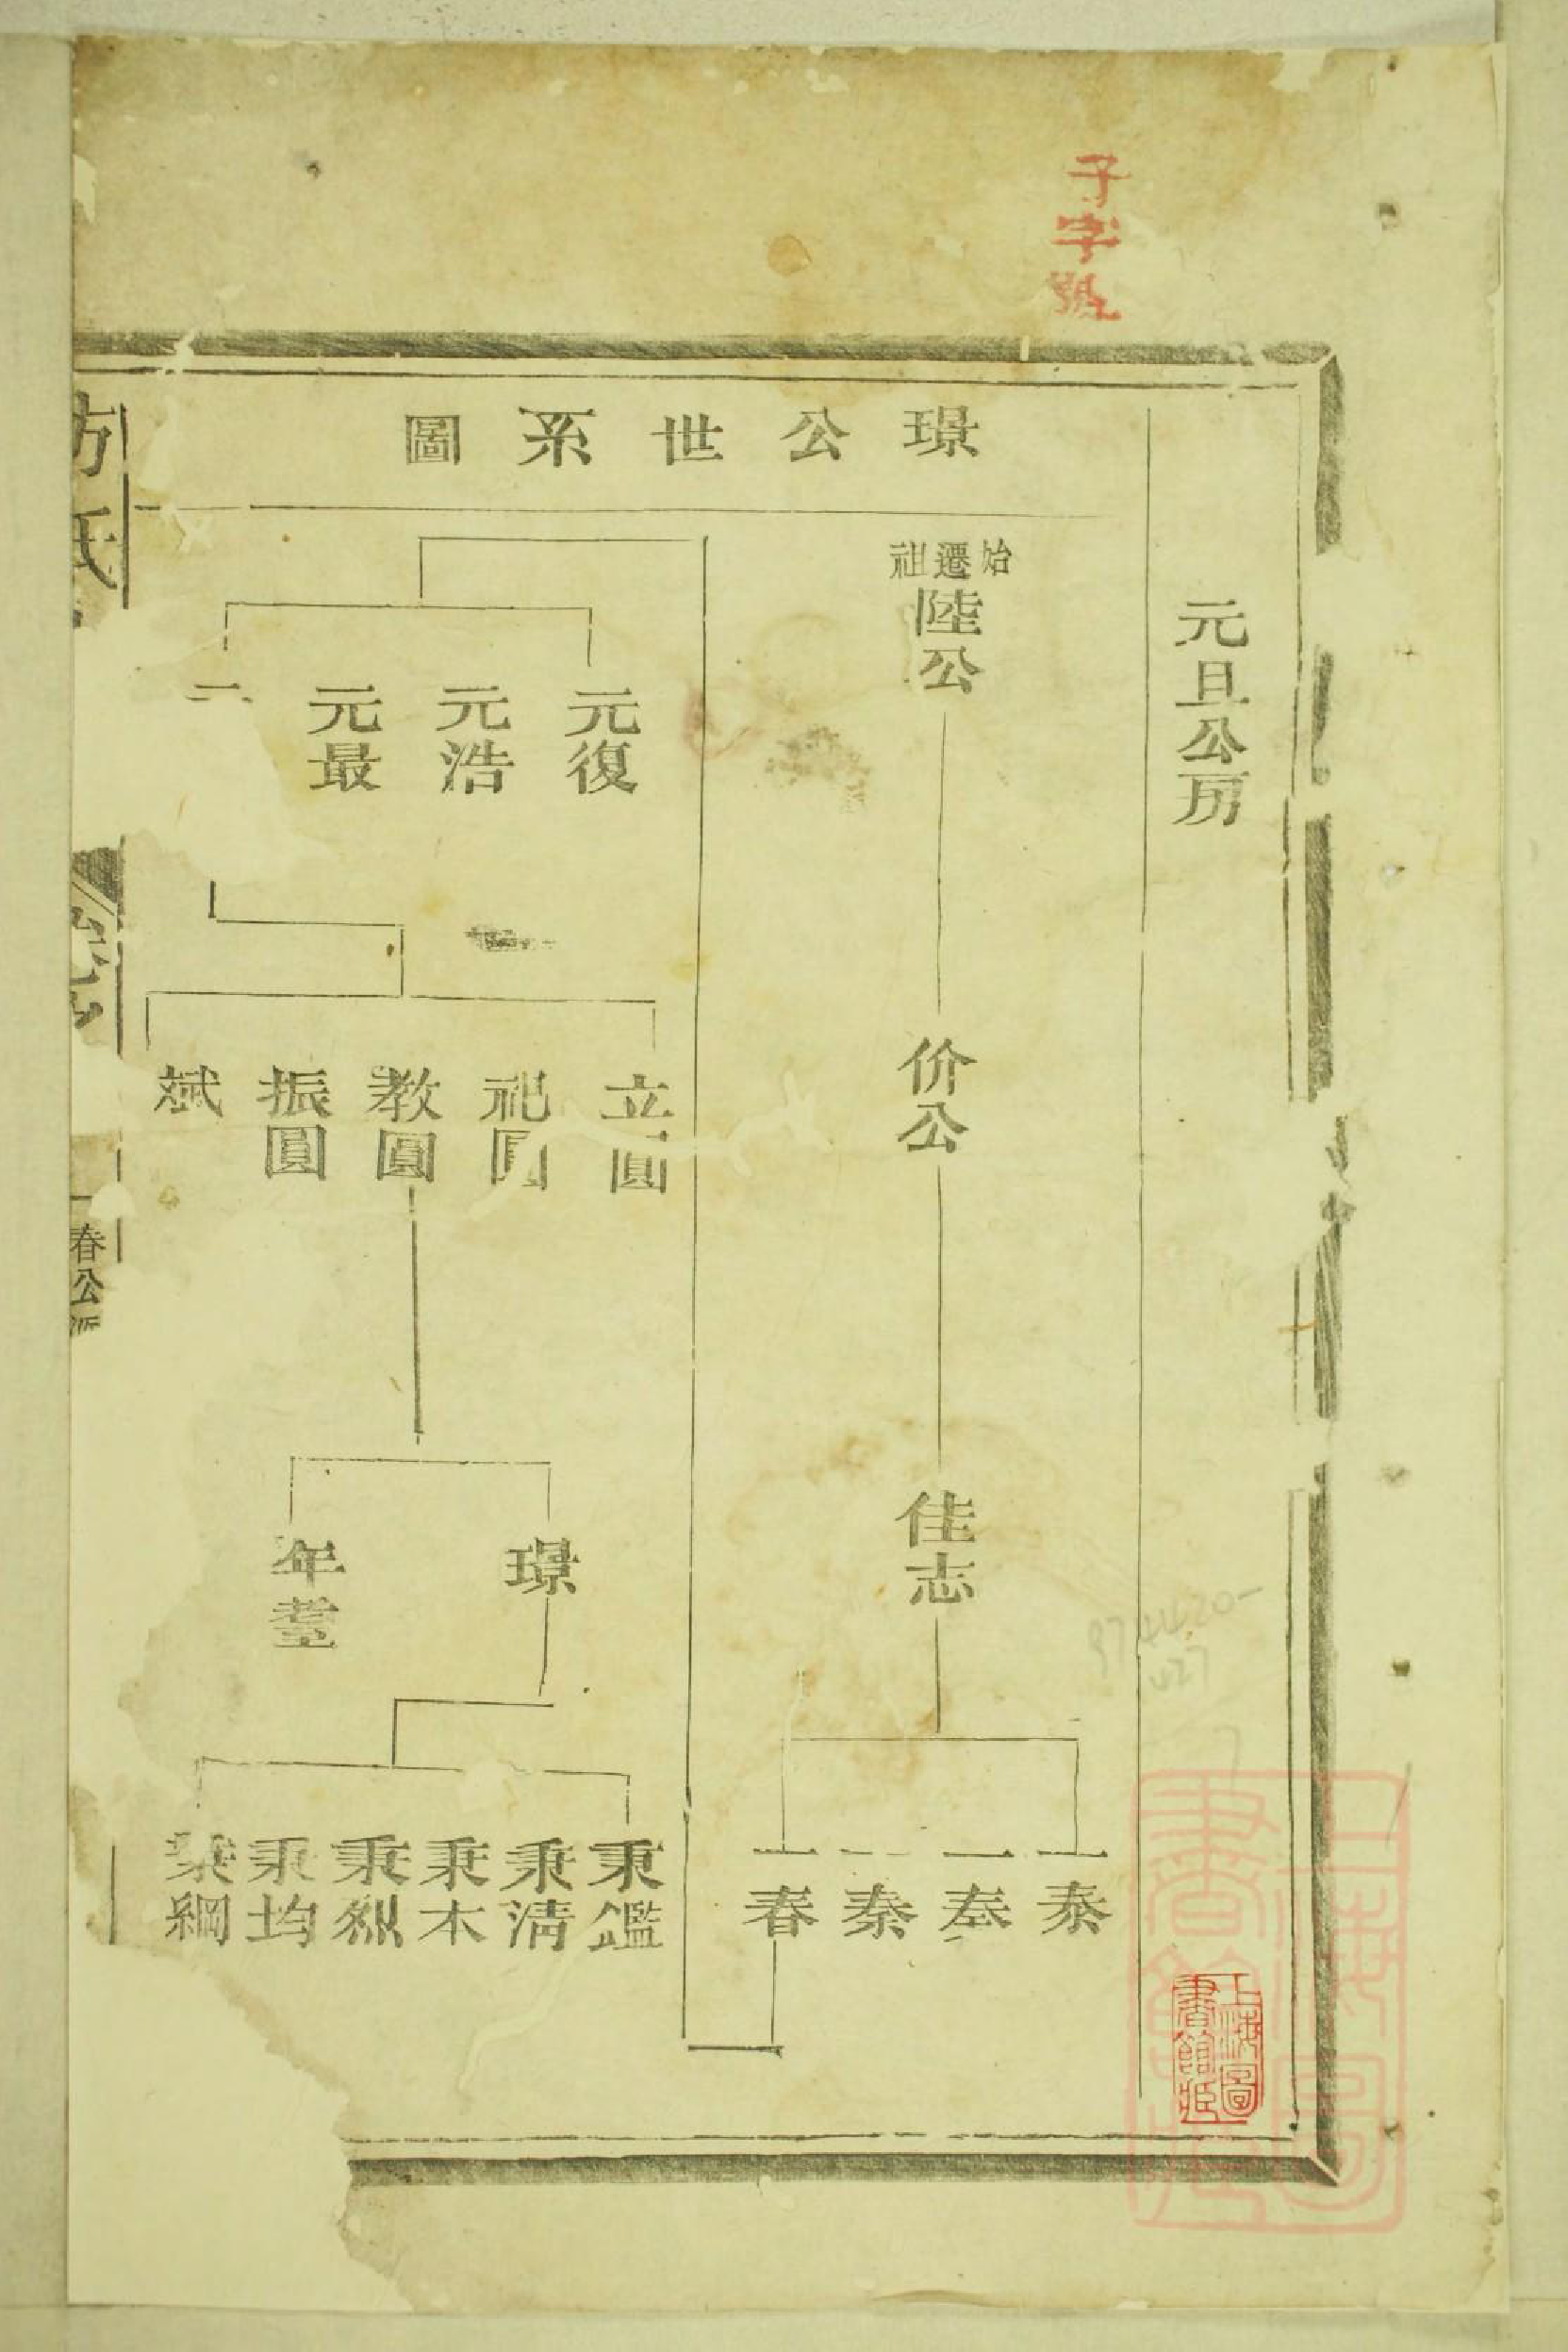 子字號
元旦公房
璟公世系圖
始遷祖
陸公
价公
佳志
一泰
一奏
一秦
一春
元復
元浩
元最
立圓
祀圓
教圓
振圓
斌
璟
年䔲
秉鑑
秉清
秉木
秉烈
秉均
秉綱
方氏
一春公派
上海圖書館藏
上海圖書館藏